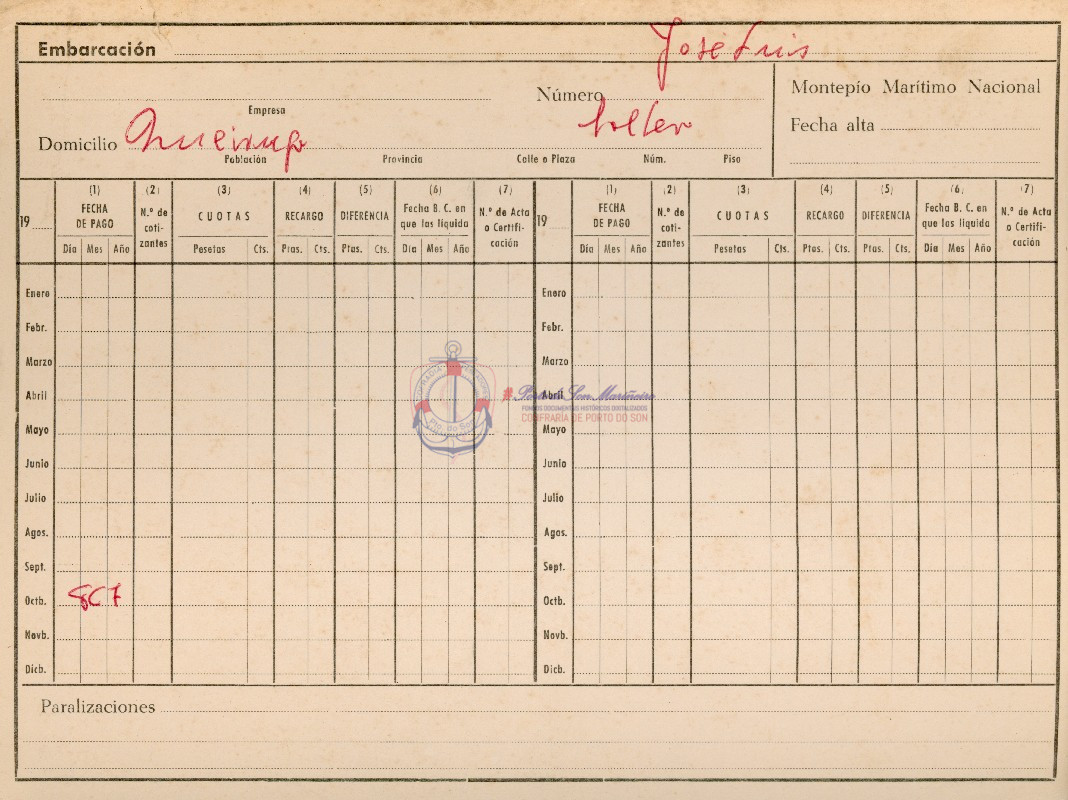 Embarcación José Luis
Empresa
Número soltero
Montepío Marítimo Nacional
Fecha alta
Domicilio Queiruga
Población Provincia Calle o Plaza Núm. Piso
19 (1) (2) (3) (4) (5) (6) (7) 19 (1) (2) (3) (4) (5) (6) (7)
FECHA DE PAGO N.º de cotizantes CUOTAS RECARGO DIFERENCIA Fecha B. C. en que las liquida N.º de Acta o Certificación FECHA DE PAGO N.º de cotizantes CUOTAS RECARGO DIFERENCIA Fecha B. C. en que las liquida N.º de Acta o Certificación
Día Mes Año Pesetas Cts. Ptas. Cts. Ptas. Cts. Día Mes Año Día Mes Año Pesetas Cts. Ptas. Cts. Ptas. Cts. Día Mes Año
Enero Enero
Febr. Febr.
Marzo Marzo
Abril Abril
Mayo Mayo
Junio Junio
Julio Julio
Agos. Agos.
Sept. Sept.
Octb. Octb.
Novb. Novb.
Dicb. Dicb.
Paralizaciones
Pto. do Son
#Porto do Son Mariñeiro
FONDOS DOCUMENTAIS HISTÓRICOS DIXITALIZADOS
CONFRARÍA DE PORTO DO SON